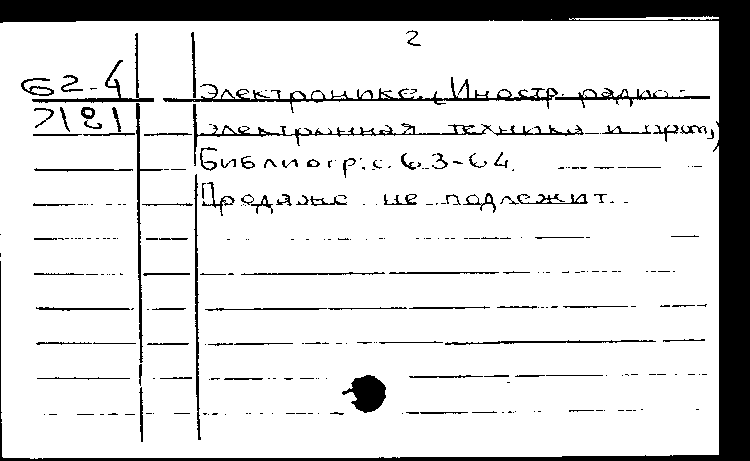 2
62-4
7121
Электронике. (Иностр. радио-
электронная техника и пром.)
Библиогр.: с. 63-64.
Продаже не подлежит.